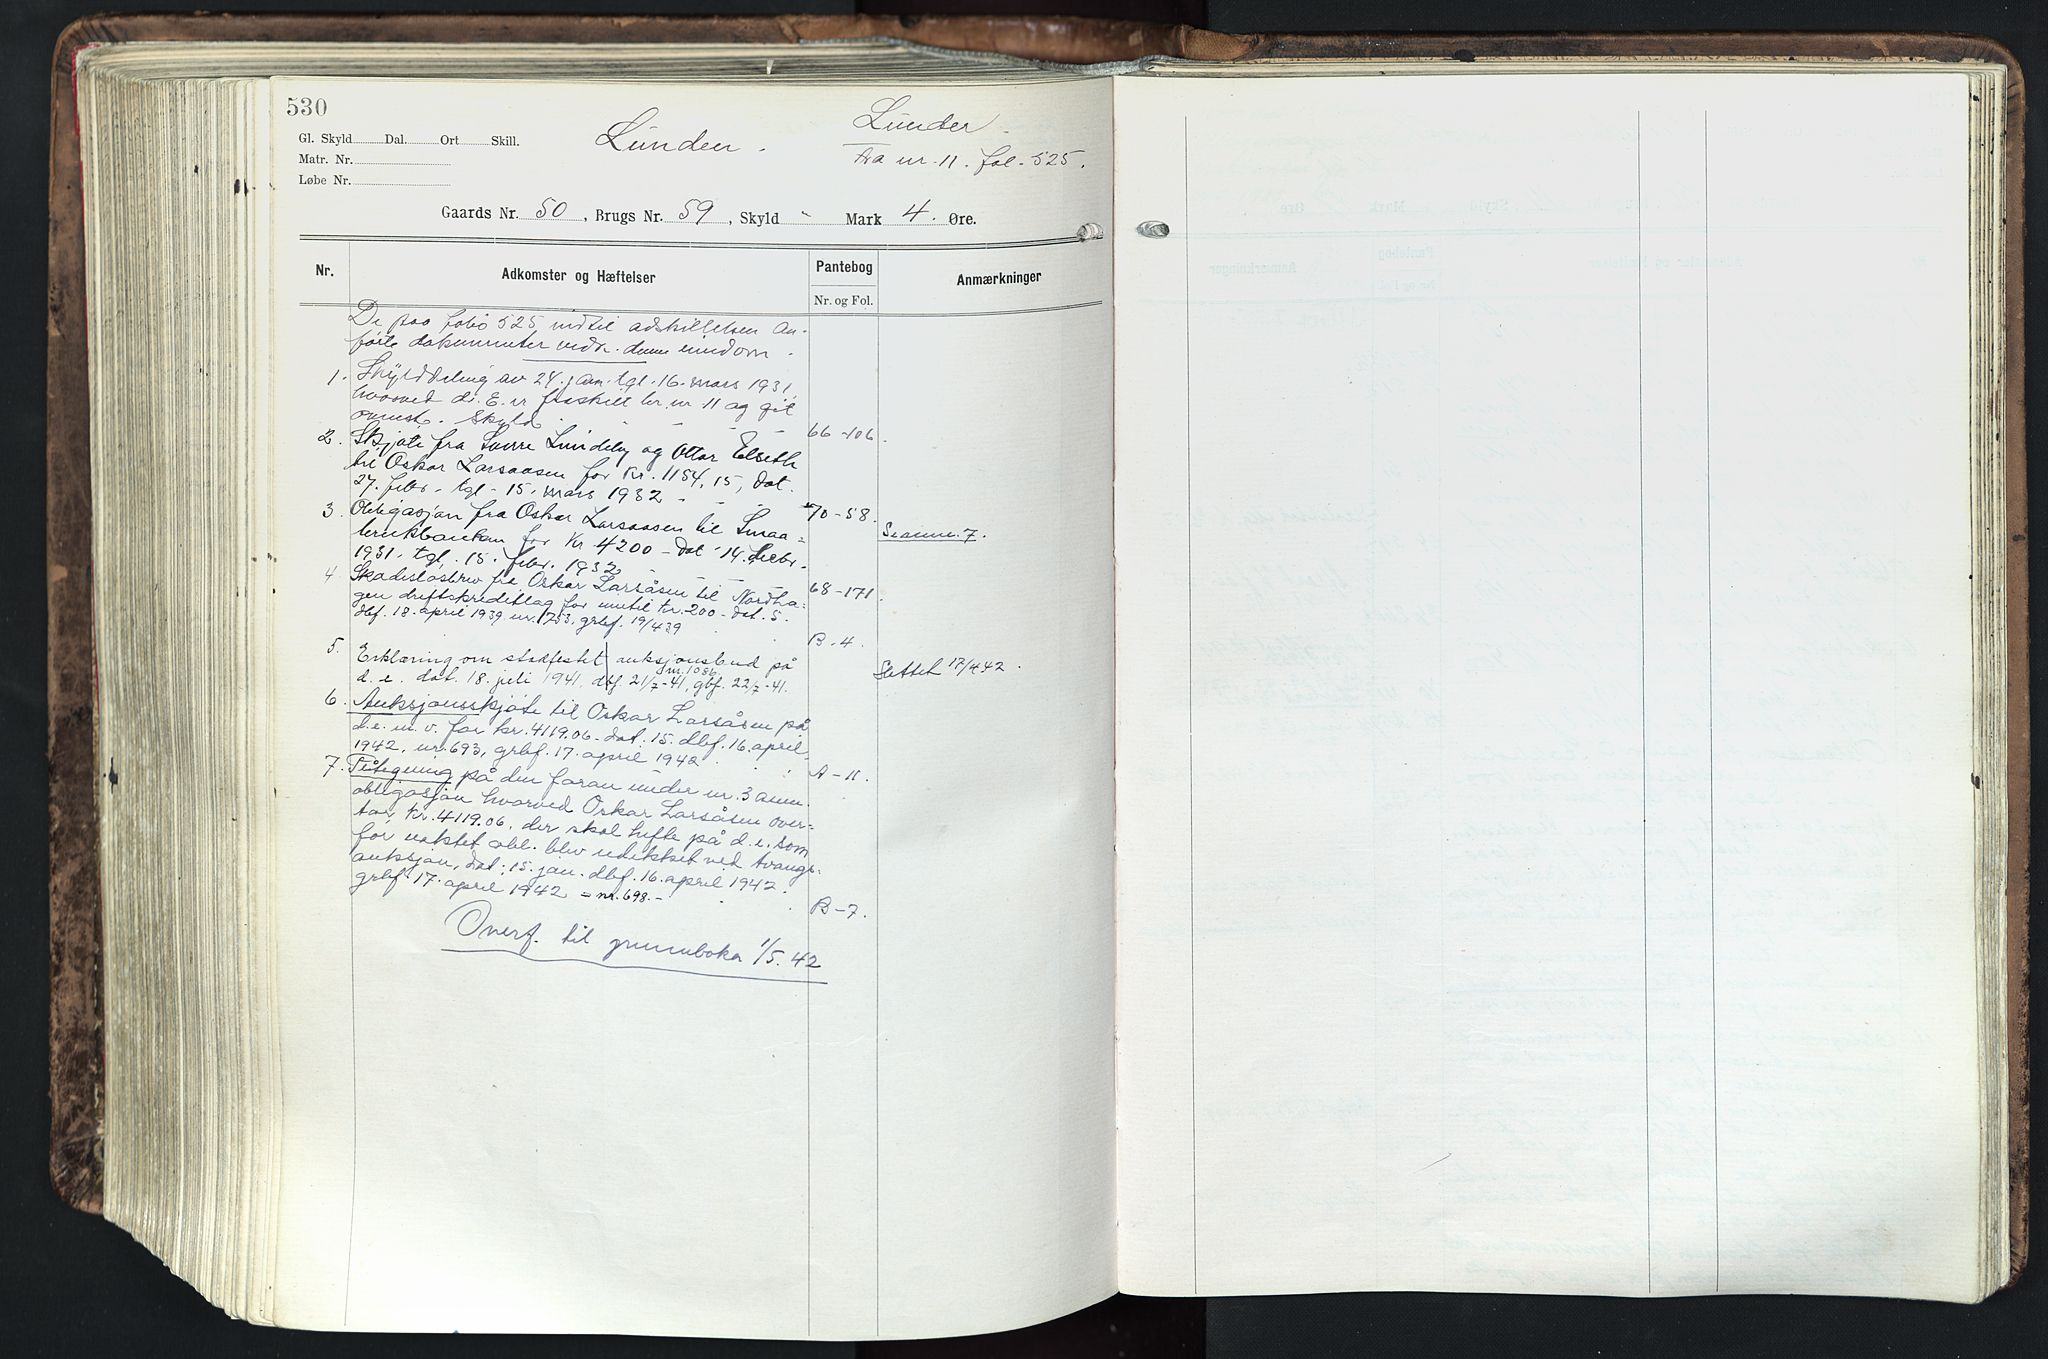 530
Gl. Skyld Dal. Ort Skill.
Matr. Nr.
Løbe Nr.
Lunden.
Lunder.
fra nr. 11. fol. 525.
Gaards Nr. 50, Brugs Nr. 59, Skyld " Mark 4. Øre.
Nr. Adkomster og Hæftelser Pantebog Anmærkninger
Nr. og Fol.
De paa folio 525 indtil adskillelsen an-
førte dokumenter vedr. denne eiendom.
1. Skylddeling av 24. jan. tgl. 16. mars 1931,
hvorved d. E. er fraskilt br. nr. 11 og git
ovenst. Skyld. - - - 66-106.
2. Skjøte fra Sverre Lundeby og Ottar Elseth
til Oskar Larsaasen for Kr. 1154,15, dat.
27. febr. tgl. 15. mars 1932 - - - 70-58.
3. Obligasjon fra Oskar Larsaasen til Smaa-
brukbanken for Kr 4200 - Dat 14. decbr.
1931. tgl. 15. febr. 1932 - - - 68-171.
Se anm. 7.
4. Skadesløsbrev fra Oskar Larsåsen til Nordha-
gen driftskreditlag for inntil kr. 200 - dat. 5.
dbf. 18. april 1939 nr. 753, grbf. 19/4 39 B-4.
5. Erklæring om stadfestet auksjonsbud på
d. e. dat. 18. juli 1941, dbf. 21/7-41, nr. 1086, gbf. 22/7-41.
Slettet 17/4 42.
6. Auksjonsskjøte til Oskar Larsåsen på
d. e. m. v. for kr. 4119.06 - dat. 15. dbf. 16. april
1942, nr. 693, grbf. 17. april 1942. A-11.
7. Påtegning på den foran under nr. 3 anm.
obligasjon hvorved Oskar Larsåsen over-
tar kr. 4119.06, der skal hefte på d. e. som
for uaktet obl. blev udekket ved tvangs-
auksjon, dat. 15. jan. dbf. 16. april 1942.
grbf. 17. april 1942 = nr. 698. - B-7.
Overf. til grunnboka 1/5. 42